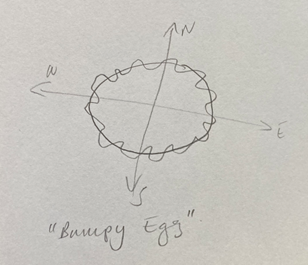 N
W
E
S
"Bumpy Egg".